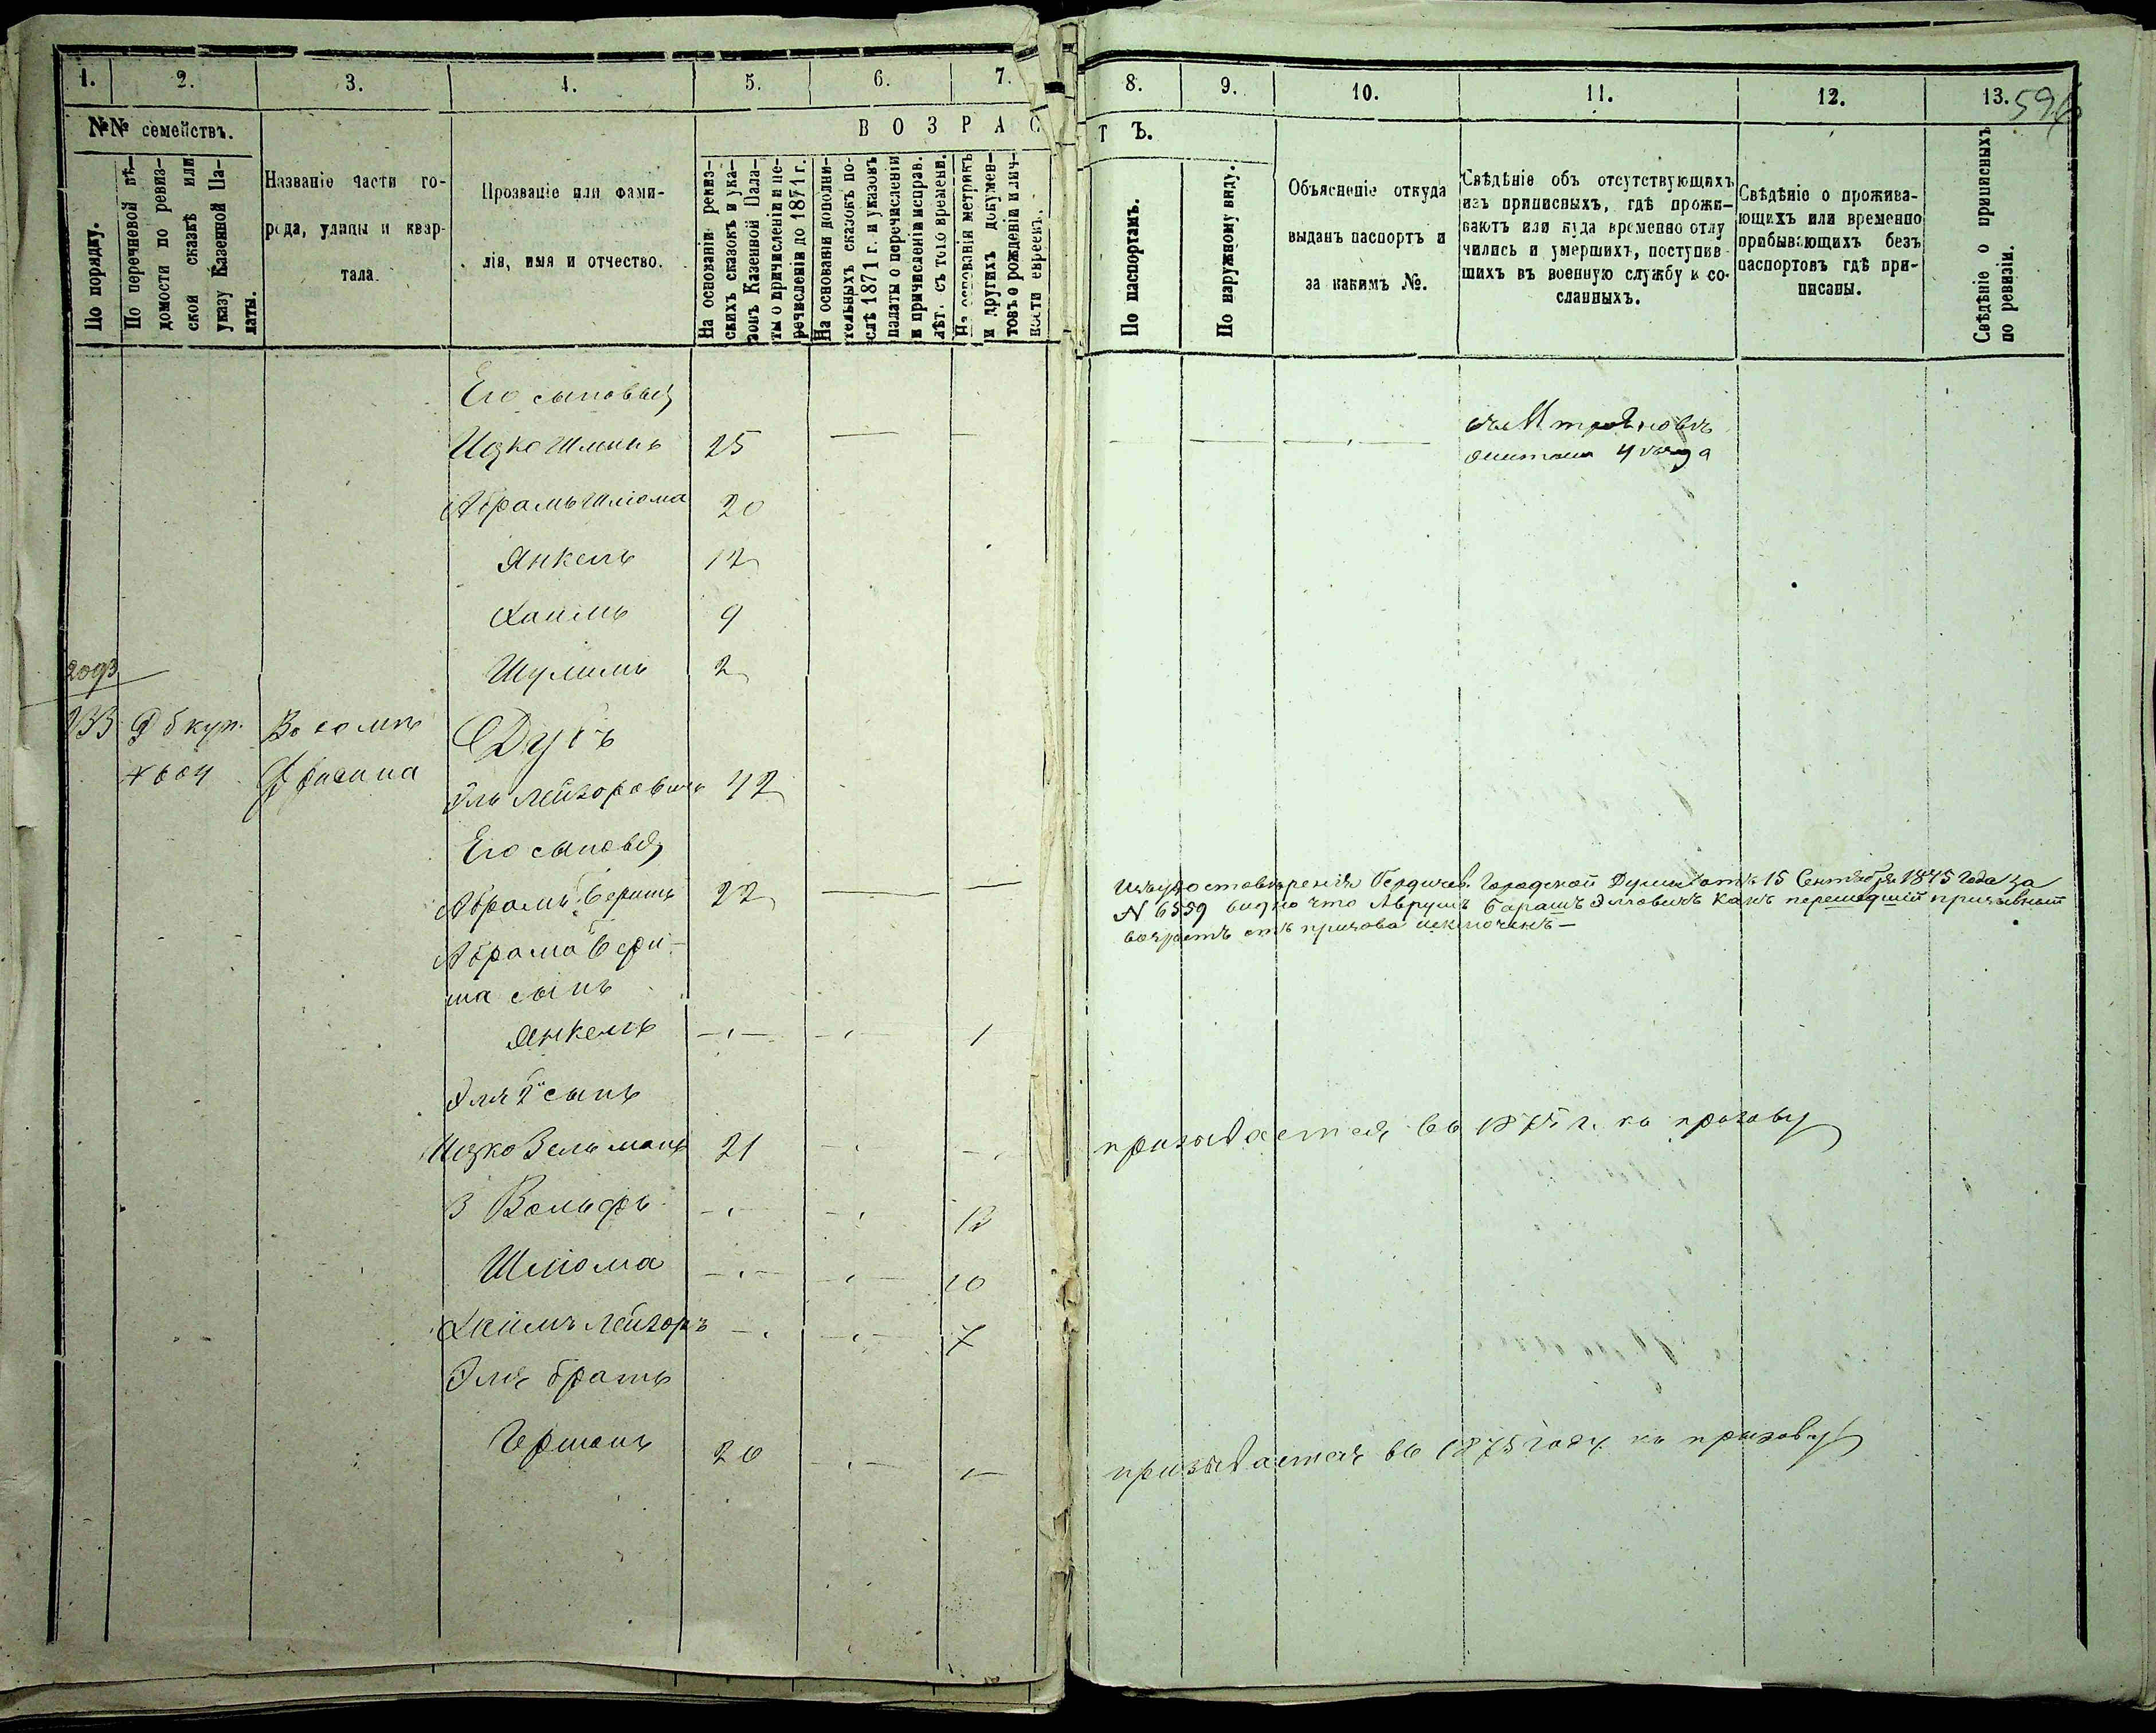 1. 2. 3. 4. 5. 6. 7.
8. 9. 10. 11. 12. 13.
596
№№ семействъ.
По порядку.
По перечневой вѣ-
домости по ревиз-
ской сказкѣ или
указу Казенной Па-
латы.
Названіе части го-
рода, улицы и квар-
тала.
Прозваніе или фами-
лія, имя и отчество.
ВОЗРАС
ТЪ.
На основаніи ревиз-
скихъ сказокъ и ука-
зовъ Казенной Пала-
ты о причисленіи и пе-
речисленіи до 1871 г.
На основаніи дополни-
тельныхъ сказокъ по-
слѣ 1871 г. и указовъ
палаты о перечисленіи
и причисленіи исправ.
лѣт. съ того времени.
На основаніи метрикъ
и другихъ докумен-
товъ о рожденіи и лич-
ности евреевъ.
По паспортамъ.
По наружному виду.
Объясненіе откуда
выданъ паспортъ и
за какимъ №.
Свѣдѣніе объ отсутствующихъ
изъ приписныхъ, гдѣ прожи-
ваютъ или куда временно отлу
чились и умершихъ, поступив-
шихъ въ военную службу и со-
сланныхъ.
Свѣдѣніе о прожива-
ющихъ или временно
прибывающихъ безъ
паспортовъ гдѣ при-
писаны.
Свѣдѣніе о приписныхъ
по ревизіи.
Его сыновья
Ицко 25
Абрамъ Шлiома 20
Янкель 12
Хаимъ 9
Шулимъ 2
2093
233 куп. Дугъ
Эль Лейзоровичъ 42
Его сыновья
Абрамъ Беришъ 22
Изъ удостовѣренія Бердичев. Городской Думы отъ 15 Сентября 1875 года за
N 6559 видно что Аврумъ Барашъ Эллевичъ какъ перешедшій призывной
возрастъ отъ призова исключенъ —
Абрама Бери-
ша сынъ
Янкель 1
Эля 2й сынъ
Ицко Зельманъ 21 призывается въ 1875 г. къ призову
3 Вольфъ 13
Шлiома 10
Хаимъ Лейзоръ 7
Эля братъ
Гершонъ 20 призывается въ 1875 году къ призову